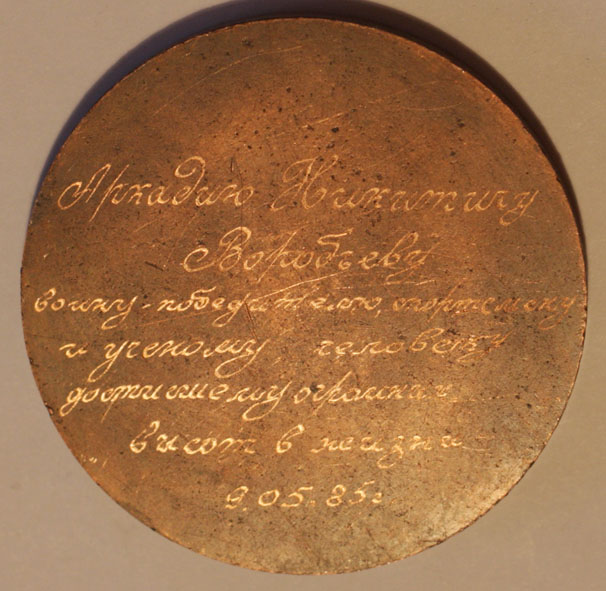 Аркадию Никитичу
Воробьеву
воину-победителю, спортсмену
и ученому, человеку
достигшему огромных
высот в жизни
9.05.85г